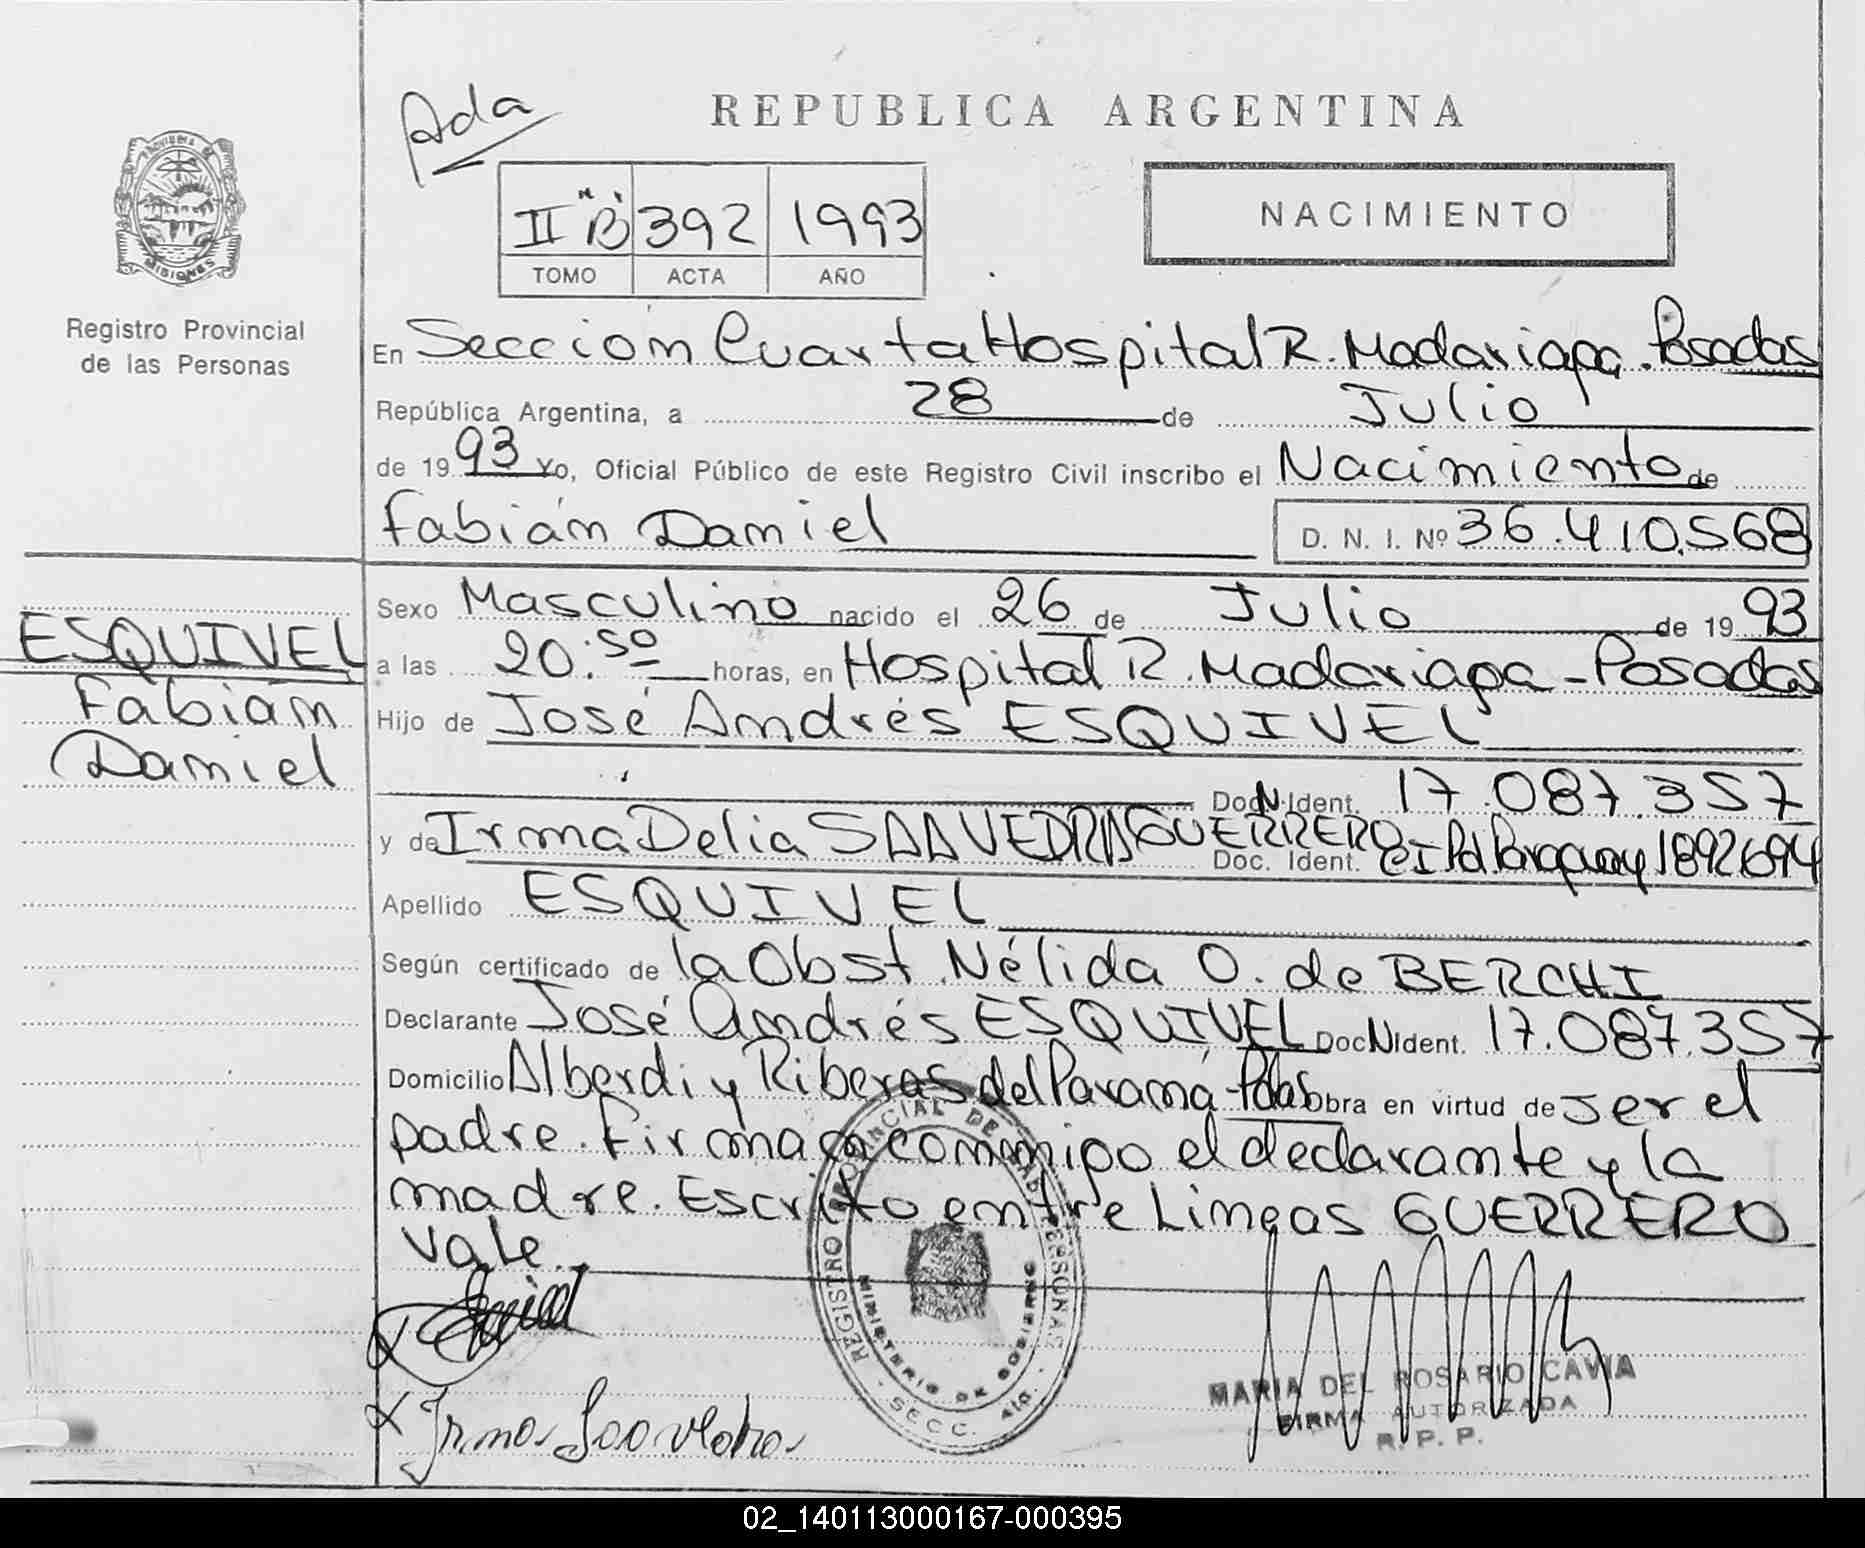 Ada
REPUBLICA ARGENTINA
II "B" 392 1993
TOMO ACTA AÑO
NACIMIENTO
MISIONES
Registro Provincial
de las Personas
En Sección Cuarta Hospital R. Madariaga. Posadas
República Argentina, a 28 de Julio
de 1993 Yo, Oficial Público de este Registro Civil inscribo el Nacimiento de
Fabián Daniel D. N. I. Nº 36.410.568
ESQUIVEL
Fabián
Daniel
Sexo Masculino nacido el 26 de Julio de 1993
a las 20:50 horas, en Hospital R. Madariaga - Posadas
Hijo de José Andrés ESQUIVEL
Doc. N. Ident. 17.087.357
y de Irma Delia SAAVEDRA GUERRERO Doc. Ident. CI Pol Paraguay 1892694
Apellido ESQUIVEL
Según certificado de la Obst. Nélida O. de BERCHI
Declarante José Andrés ESQUIVEL Doc N Ident. 17.087.357
Domicilio Alberdi y Riberas del Paraná - Pdas Obra en virtud de ser el
padre. Firman conmigo el declarante y la
madre. Escrito entre Lineas GUERRERO
Vale.
REGISTRO PROVINCIAL DE LAS PERSONAS
MINISTERIO DE GOBIERNO
SECC. 4ta.
Irma Saavedra
MARIA DEL ROSARIO CAVIA
FIRMA AUTORIZADA
R. P. P.
02_140113000167-000395